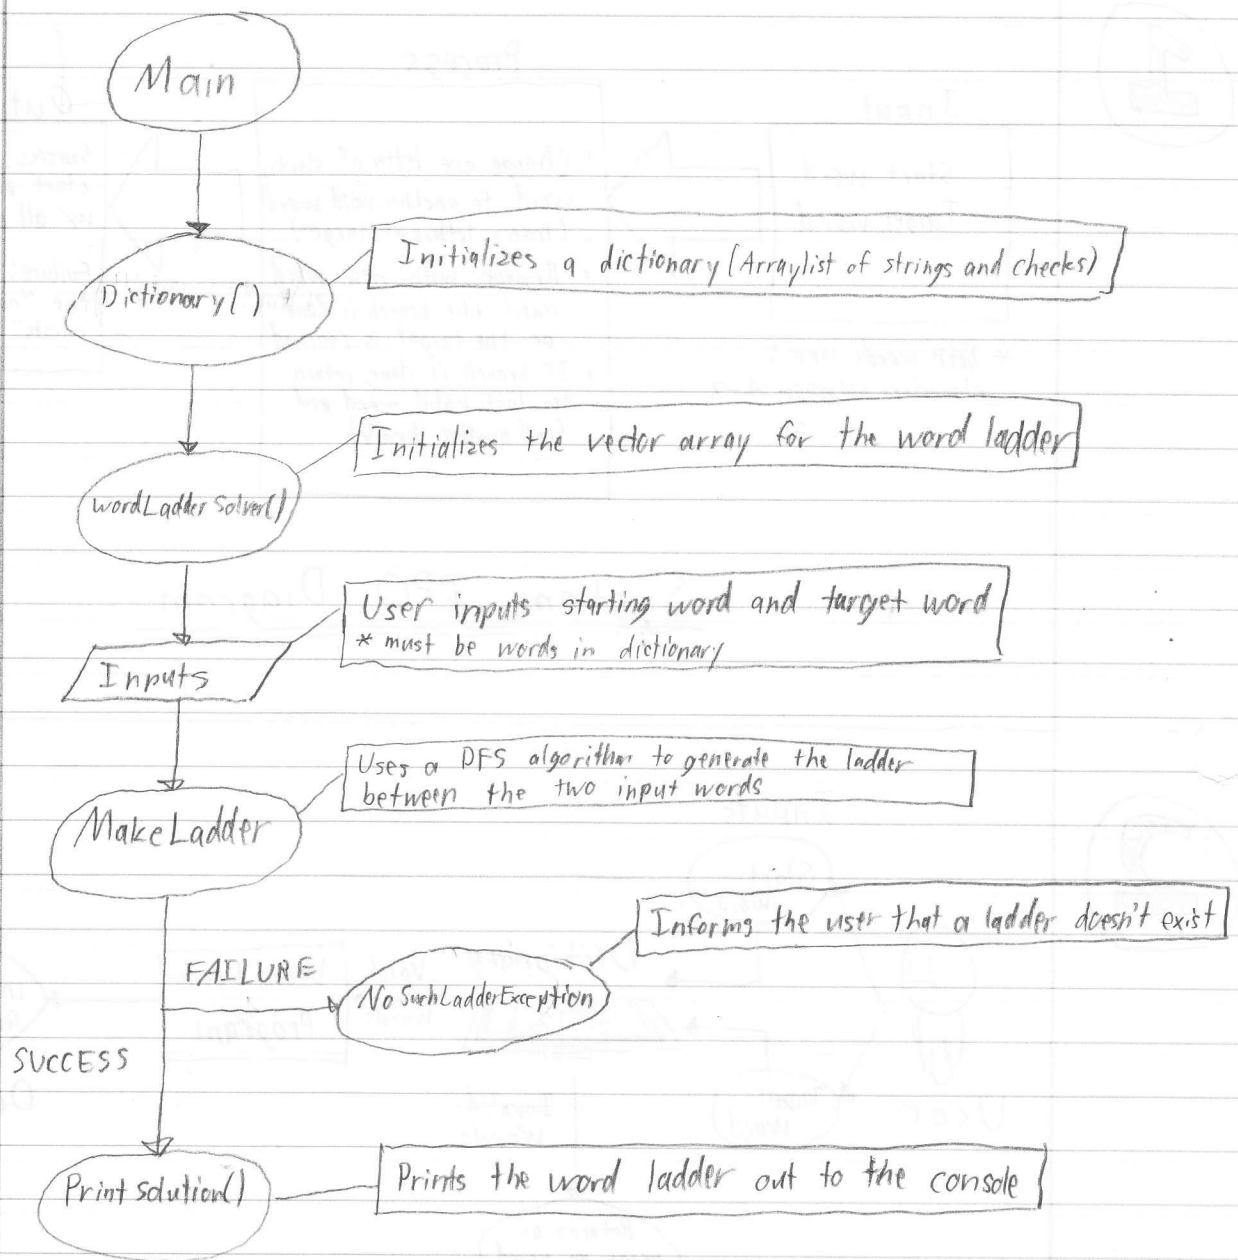 Main
Dictionary()
Initializes a dictionary (Arraylist of strings and checks)
wordLadderSolver()
Initializes the vector array for the word ladder
Inputs
User inputs starting word and target word
* must be words in dictionary
MakeLadder
Uses a DFS algorithm to generate the ladder
between the two input words
FAILURE
NoSuchLadderException
Informs the user that a ladder doesn't exist
SUCCESS
Print solution()
Prints the word ladder out to the console